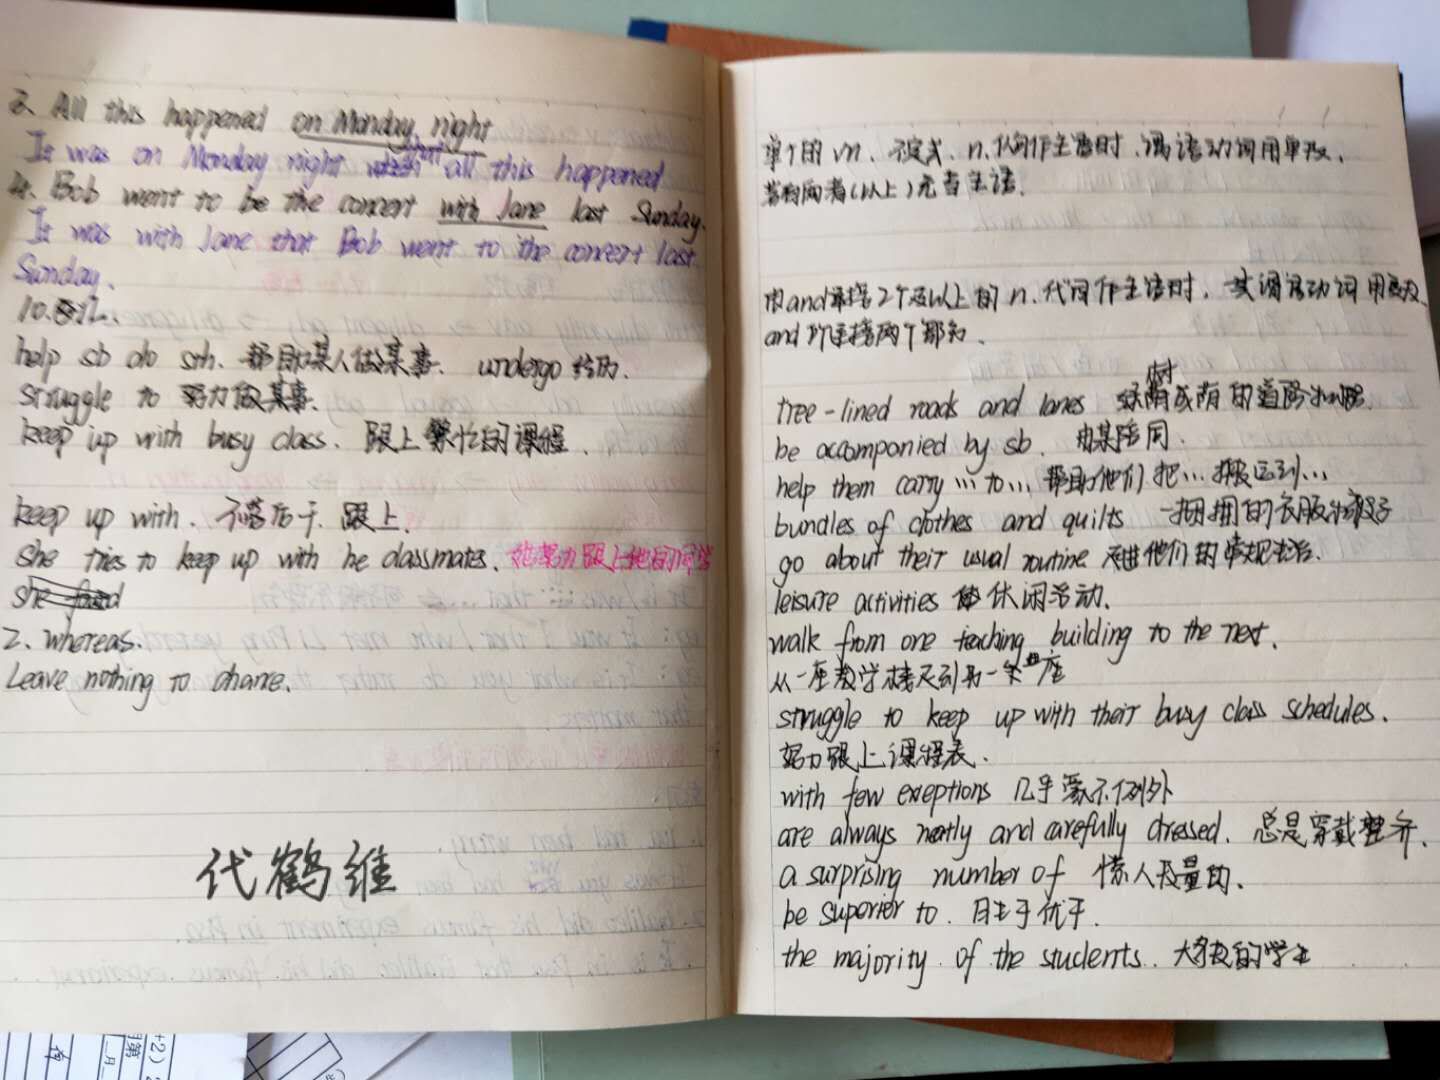 3. All this happened on Monday night
It was on Monday night that all this happened
4. Bob went to be the concert with Jane last Sunday.
It was with Jane that Bob went to the concert last
Sunday.
10.
help sb do sth. 帮助某人做某事. undergo 经历.
struggle to 努力做某事.
keep up with busy class. 跟上繁忙的课程.
keep up with. 不落后于. 跟上.
she tries to keep up with he classmates. 她努力跟上他的同学
2. whereas.
Leave nothing to chance.
代鹤维
单个的 vn. 不定式. n. 代词作主语时. 谓语动词用单数.
若有两者(以上)充当主语.
由and连接2个及以上的 n. 代词作主语时. 其谓语动词用复数.
and 所连接两个都为.
树
tree-lined roads and lanes 绿荫成荫的道路和小路.
be accompanied by sb. 由某陪同.
help them carry ... to ... 帮助他们把...搬运到...
bundles of clothes and quilts 一捆捆的衣服和被子
go about their usual routine 他们的常规生活.
leisure activities 休闲活动.
walk from one teaching building to the next.
从一座教学楼走到另一座
struggle to keep up with their busy class schedules.
努力跟上课程表.
with few exeptions 几乎毫不例外
are always neatly and carefully dressed. 总是穿戴整齐.
a surprising number of 惊人数量的.
be superior to. 优于.
the majority of the students. 大多数的学生